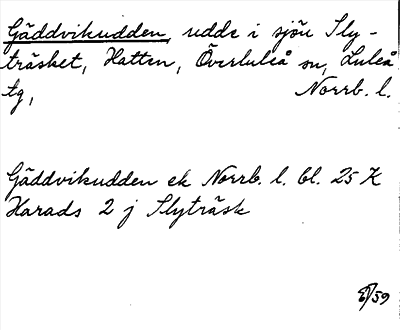 Gäddvikudden, udde i sjön Sly-
träsket, Hatten, Överluleå sn, Luleå
tg, Norrb. l.
Gäddvikudden ek Norrb. l. bl. 25 K
Harads 2 j Slyträsk
/59